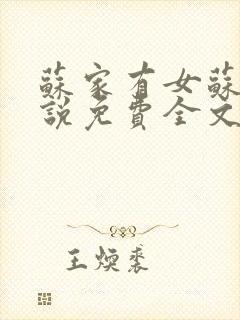 蘇家有女蘇
說免費全文
王煥裘